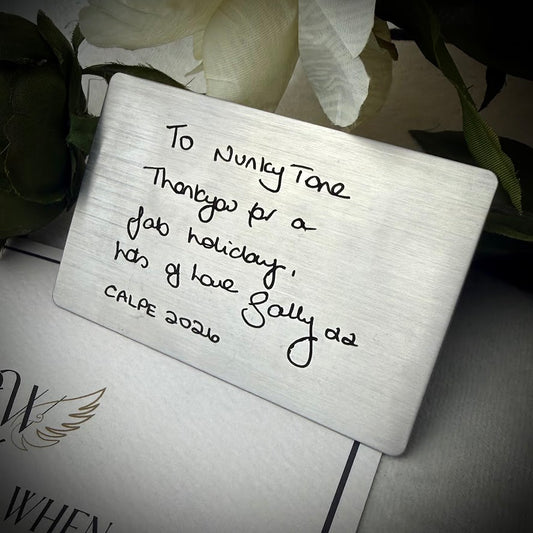 To Nunky Tone
Thankyou for a
fab holiday.
lots of love Sally
CALPE 2026
W
WHEN